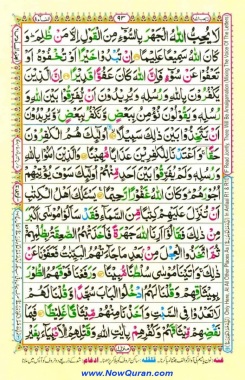 ٩٣
لَا يُحِبُّ اللهُ الْجَهْرَ بِالسُّوْٓءِ مِنَ الْقَوْلِ اِلَّا مَنْ ظُلِمَ ؕ وَ
كَانَ اللهُ سَمِيْعًا عَلِيْمًا اِنْ تُبْدُوْا خَيْرًا اَوْ تُخْفُوْهُ اَوْ
تَعْفُوْا عَنْ سُوْٓءٍ فَاِنَّ اللهَ كَانَ عَفُوًّا قَدِيْرًا اِنَّ الَّذِيْنَ
يَكْفُرُوْنَ بِاللهِ وَرُسُلِهٖ وَيُرِيْدُوْنَ اَنْ يُّفَرِّقُوْا بَيْنَ اللهِ
وَرُسُلِهٖ وَيَقُوْلُوْنَ نُؤْمِنُ بِبَعْضٍ وَّنَكْفُرُ بِبَعْضٍ وَّيُرِيْدُوْنَ
اَنْ يَّتَّخِذُوْا بَيْنَ ذٰلِكَ سَبِيْلًا اُولٰٓئِكَ هُمُ الْكٰفِرُوْنَ
حَقًّا وَاَعْتَدْنَا لِلْكٰفِرِيْنَ عَذَابًا مُّهِيْنًا وَالَّذِيْنَ اٰمَنُوْا بِاللهِ
وَرُسُلِهٖ وَلَمْ يُفَرِّقُوْا بَيْنَ اَحَدٍ مِّنْهُمْ اُولٰٓئِكَ سَوْفَ يُؤْتِيْهِمْ
اُجُوْرَهُمْ وَكَانَ اللهُ غَفُوْرًا رَّحِيْمًا يَسْئَلُكَ اَهْلُ الْكِتٰبِ
اَنْ تُنَزِّلَ عَلَيْهِمْ كِتٰبًا مِّنَ السَّمَآءِ فَقَدْ سَاَلُوْا مُوْسٰٓى اَكْبَرَ
مِنْ ذٰلِكَ فَقَالُوْٓا اَرِنَا اللهَ جَهْرَةً فَاَخَذَتْهُمُ الصّٰعِقَةُ بِظُلْمِهِمْ
ثُمَّ اتَّخَذُوا الْعِجْلَ مِنْ بَعْدِ مَا جَآءَتْهُمُ الْبَيِّنٰتُ فَعَفَوْنَا عَنْ
ذٰلِكَ وَاٰتَيْنَا مُوْسٰى سُلْطٰنًا مُّبِيْنًا وَرَفَعْنَا فَوْقَهُمُ الطُّوْرَ
بِمِيْثَاقِهِمْ وَقُلْنَا لَهُمُ ادْخُلُوا الْبَابَ سُجَّدًا وَّقُلْنَا لَهُمْ
لَا تَعْدُوْا فِى السَّبْتِ وَاَخَذْنَا مِنْهُمْ مِّيْثَاقًا غَلِيْظًا فَبِمَا
نَقْضِهِمْ مِّيْثَاقَهُمْ وَكُفْرِهِمْ بِاٰيٰتِ اللهِ وَقَتْلِهِمُ الْاَنْۢبِيَآءَ بِغَيْرِ
www.NowQuran.com